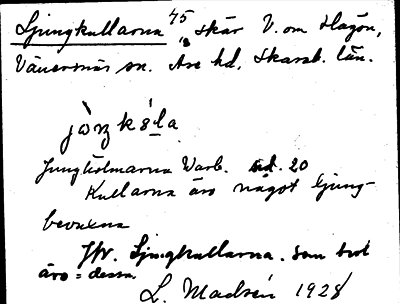 Ljungkullarna 45, skär V. om Hagön,
Vänersnäs sn. Åse hd. Skarab. län.
jòŋkɞ́la
Jungholmarna Varb. sid. 20
Kullarna äro något ljung-
bevuxna
Jfr. Ljungkullarna. Som
äro = dessa
L. Madsén 1928